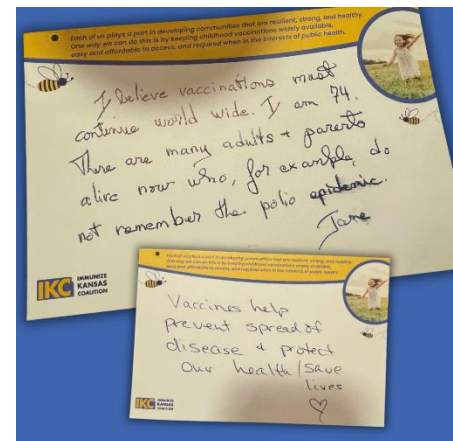 Each of us plays a part in developing communities that are resilient, strong, and healthy.
One way we can do this is by keeping childhood vaccinations widely available,
easy and affordable to access, and required when in the interests of public health.
I believe vaccinations must
continue world wide. I am 74.
There are many adults + parents
alive now who, for example, do
not remember the polio epidemic.
Jane
IKC
IMMUNIZE
KANSAS
COALITION
Each of us plays a part in developing communities that are resilient, strong, and healthy.
One way we can do this is by keeping childhood vaccinations widely available,
easy and affordable to access, and required when in the interests of public health.
Vaccines help
prevent spread of
disease + protect
our health/save
lives
IKC
IMMUNIZE
KANSAS
COALITION